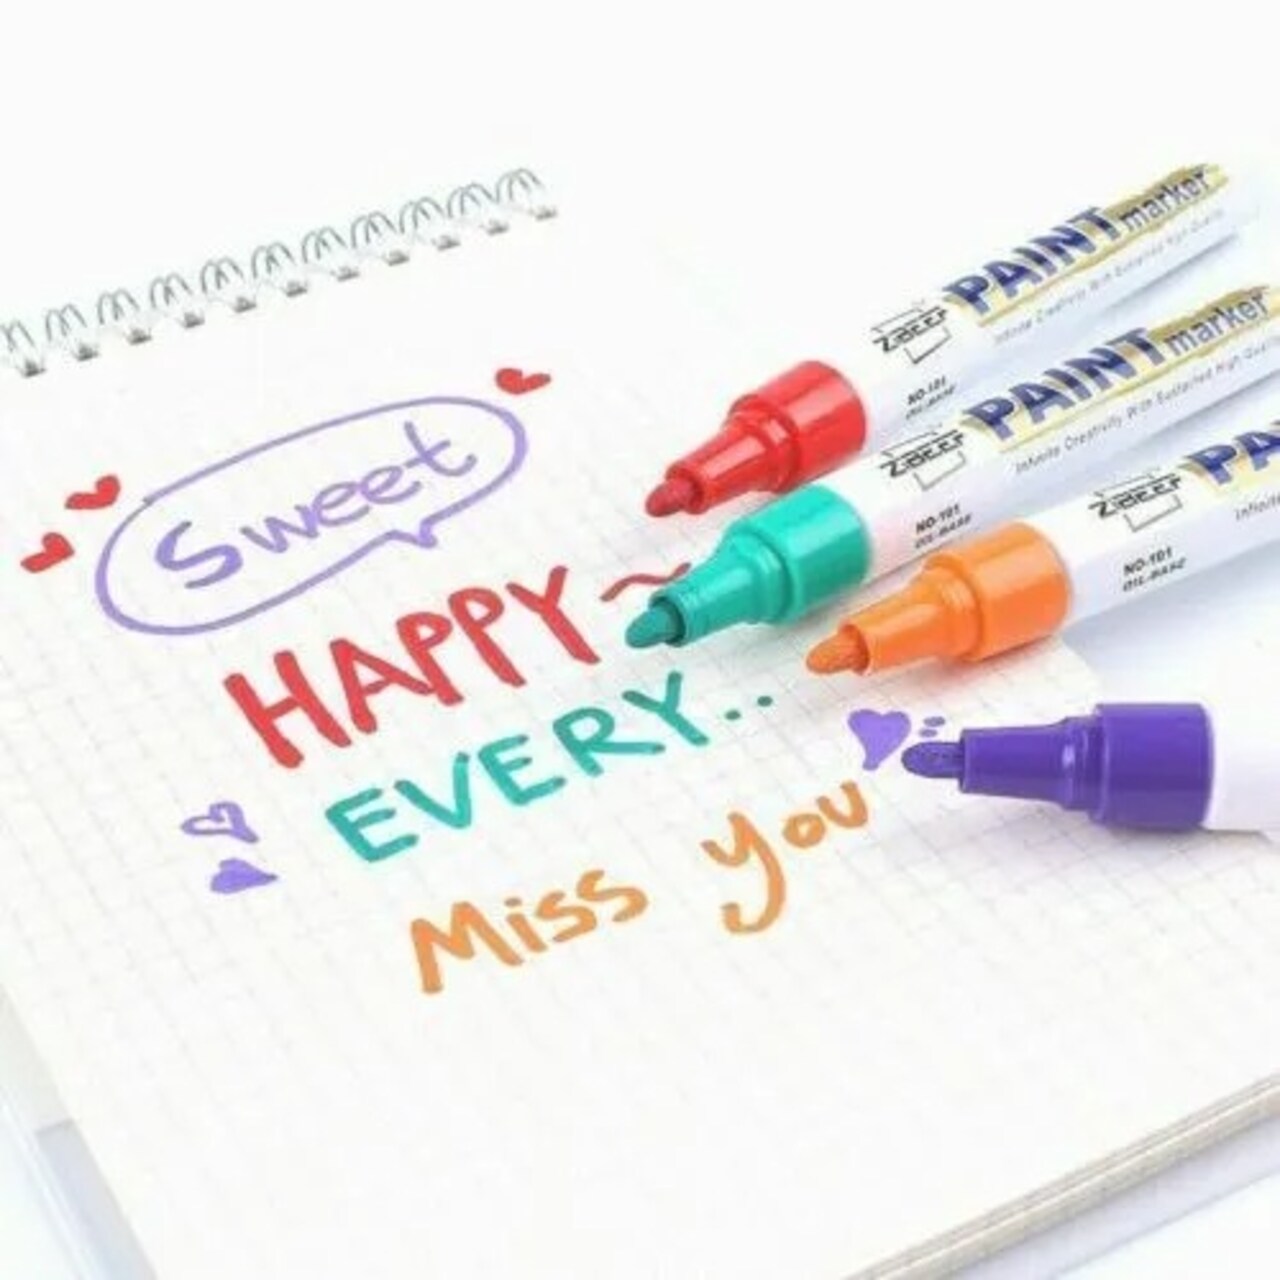 Sweet
HAPPY
EVERY..
Miss you
PAINT marker
Infinite Creativity With Sustained High Quality
ZiBEEP
NO-101
OIL-BASE
PAINT marker
Infinite Creativity With Sustained High Quali
ZiBEEP
NO-101
OIL-BASE
PA
Infinite
ZiBEEP
NO-101
OIL-BASE